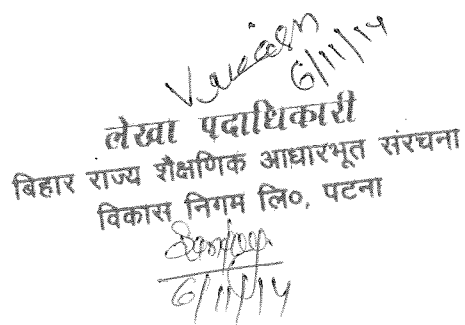 6/11/14
लेखा पदाधिकारी
बिहार राज्य शैक्षणिक आधारभूत संरचना
विकास निगम लि०, पटना
6/11/14